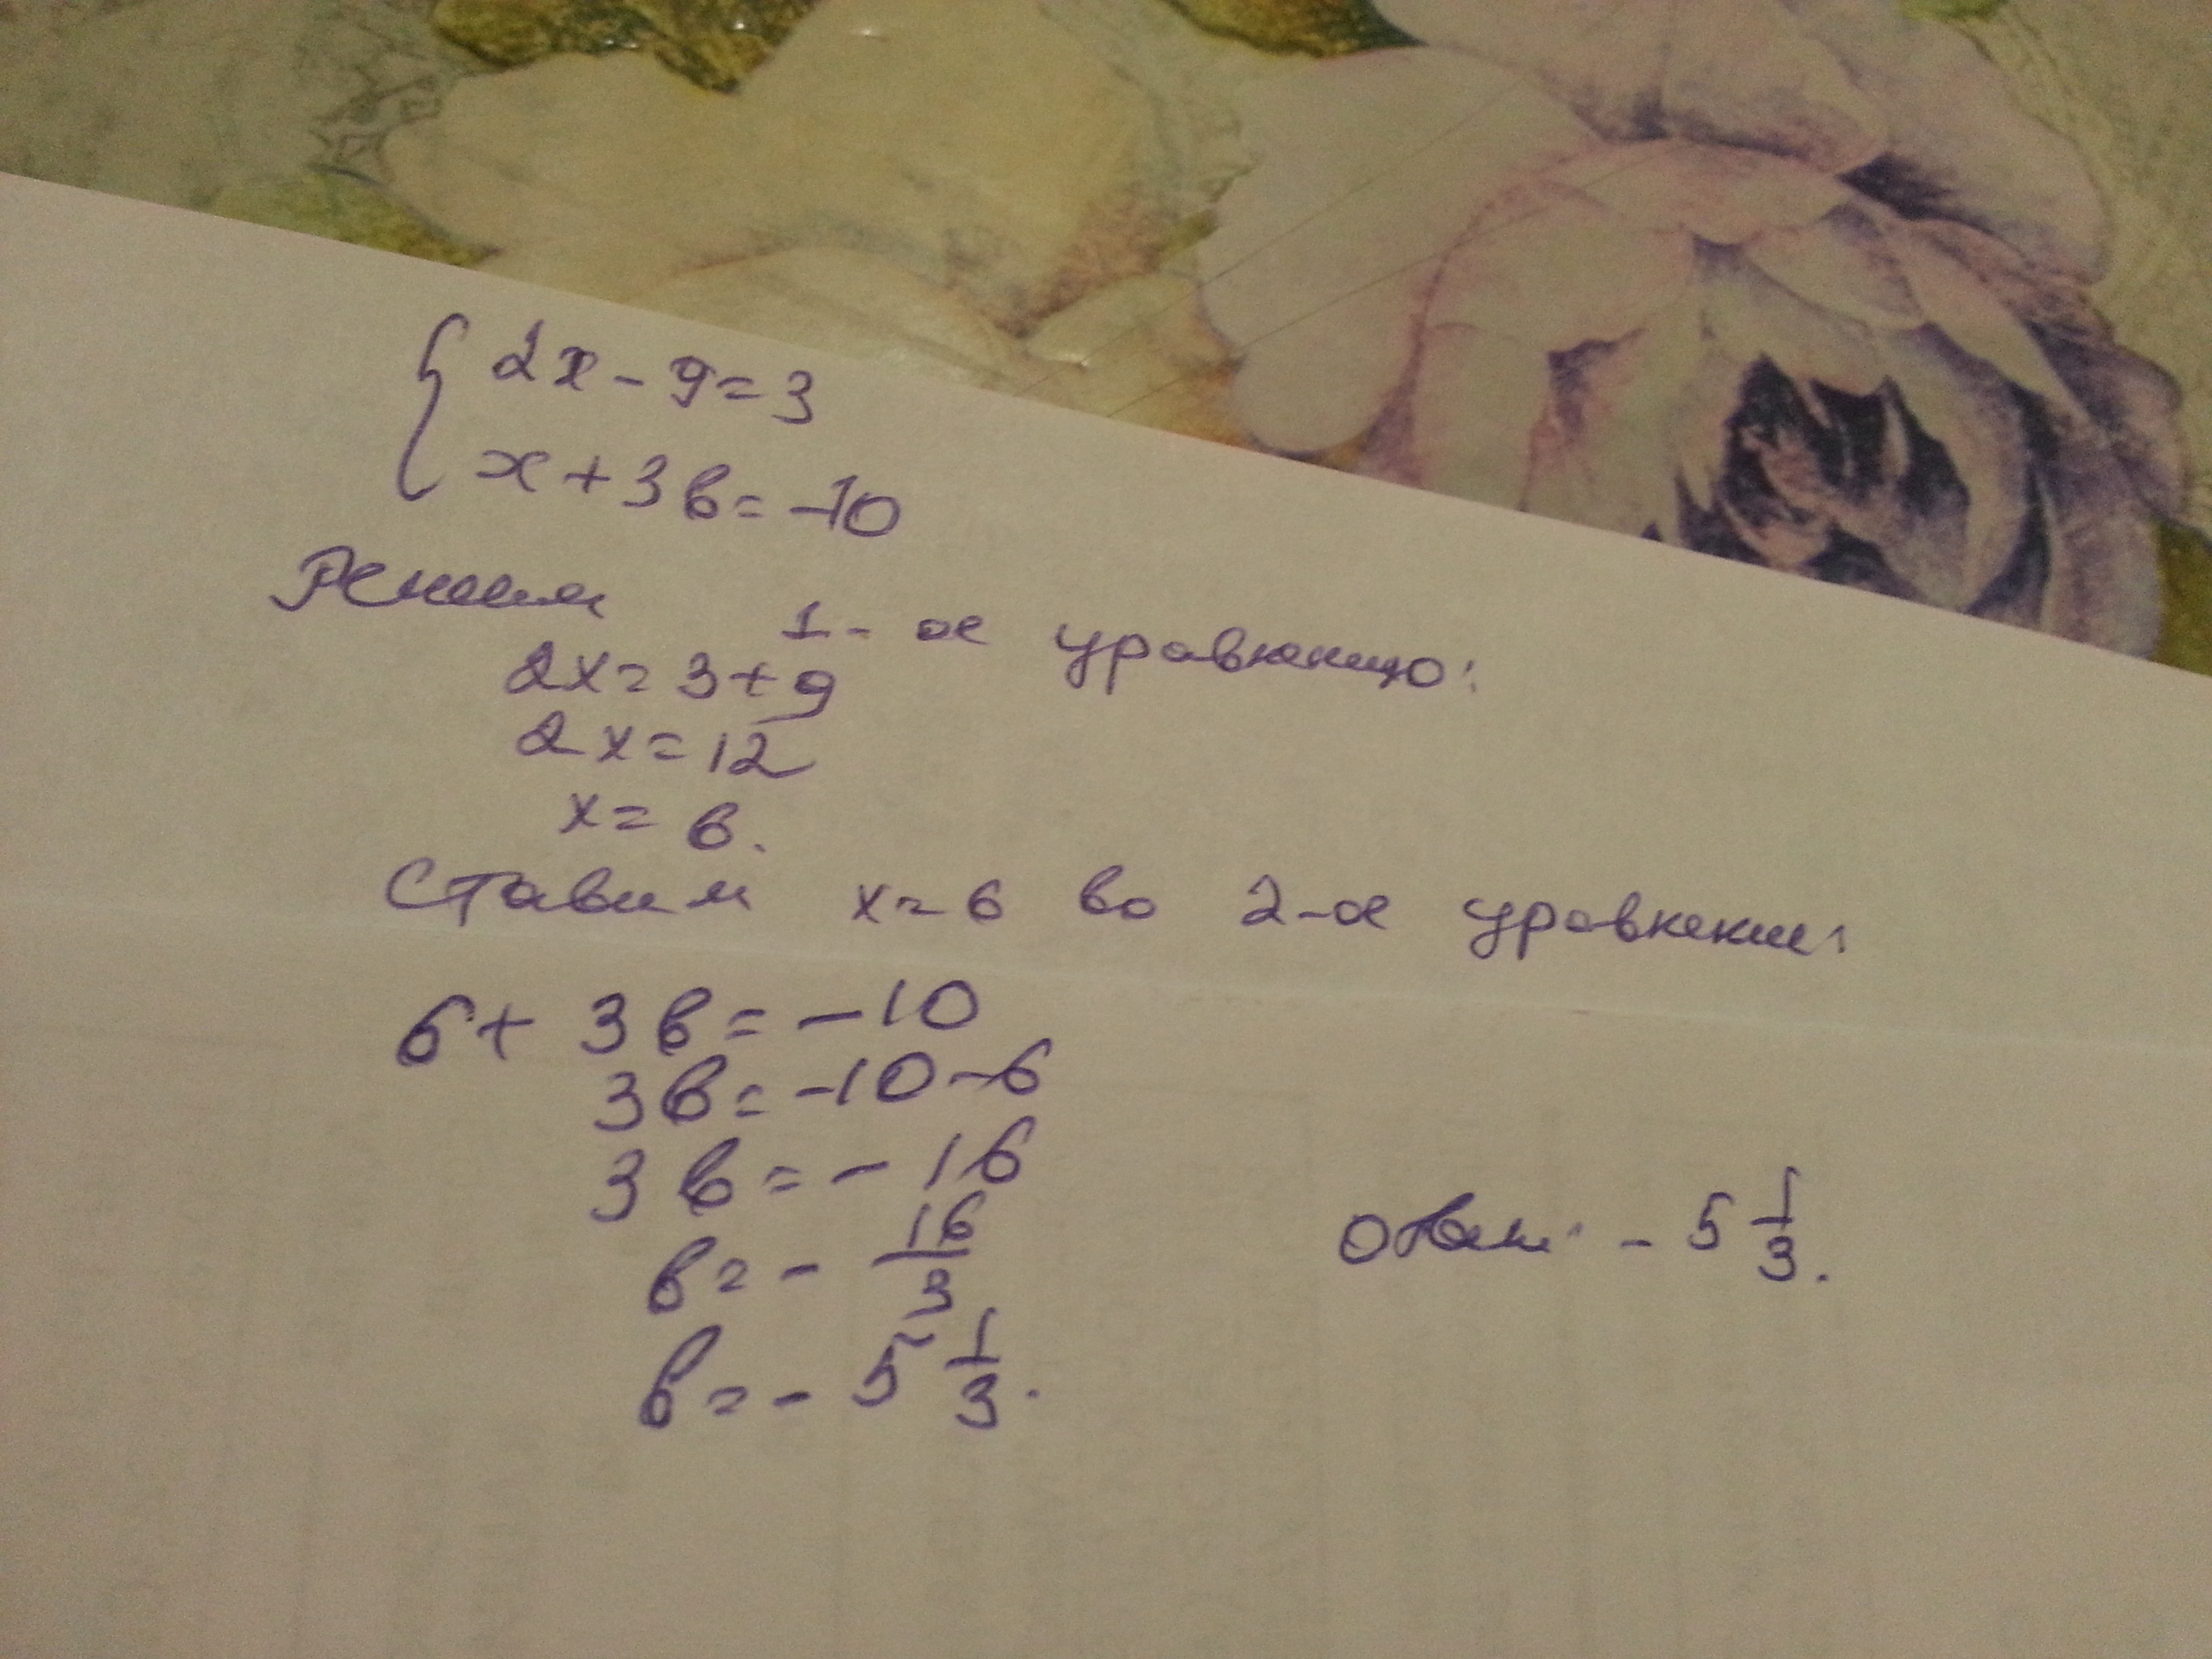 2x - 9 = 3
x + 3в = -10
Решим 1-ое уравнению:
2x = 3 + 9
2x = 12
x = 6.
Ставим x = 6 во 2-ое уравнении:
6 + 3в = -10
3в = -10 - 6
3в = - 16
в = - 16/3
в = - 5 1/3.
Ответ: - 5 1/3.